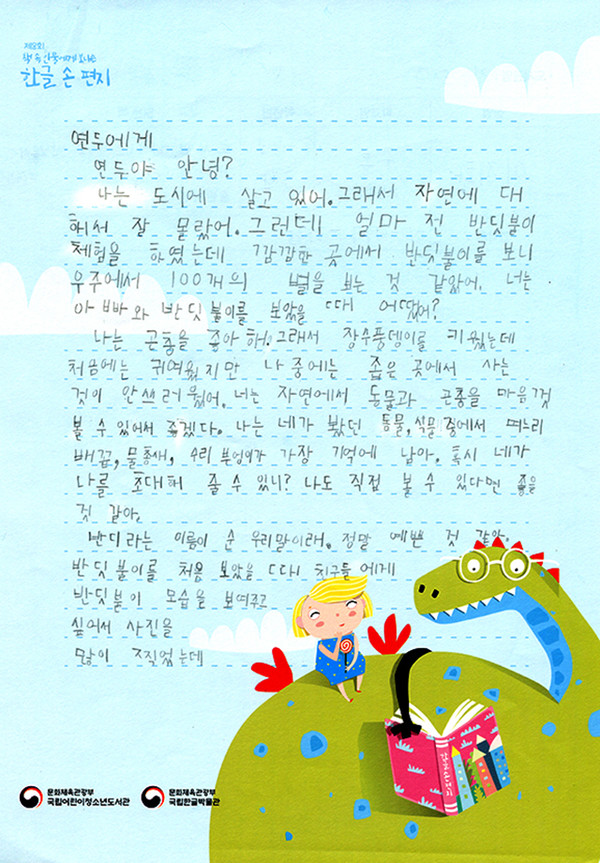 제9회
책 속 인물에게 보내는
한글 손 편지
연두에게
연두야 안녕?
나는 도시에 살고 있어. 그래서 자연에 대
해서 잘 몰랐어. 그런데 얼마 전 반딧불이
체험을 하였는데 깜깜한 곳에서 반딧불이를 보니
우주에서 100개의 별을 보는 것 같았어. 너는
아빠와 반딧불이를 보았을 때 어땠어?
나는 곤충을 좋아해. 그래서 장수풍뎅이를 키웠는데
처음에는 귀여웠지만 나중에는 좁은 곳에서 사는
것이 안쓰러웠어. 너는 자연에서 동물과 곤충을 마음껏
볼 수 있어서 좋겠다. 나는 네가 봤던 동물, 식물 중에서 며느리
배꼽, 물총새, 수리부엉이가 가장 기억에 남아. 혹시 네가
나를 초대해 줄 수 있니? 나도 직접 볼 수 있다면 좋을
것 같아.
반디라는 이름이 순 우리말이래. 정말 예쁜 것 같아.
반딧불이를 처음 보았을 때 친구들에게
반딧불이 모습을 보여주고
싶어서 사진을
많이 찍었는데
문화체육관광부
국립어린이청소년도서관
문화체육관광부
국립한글박물관